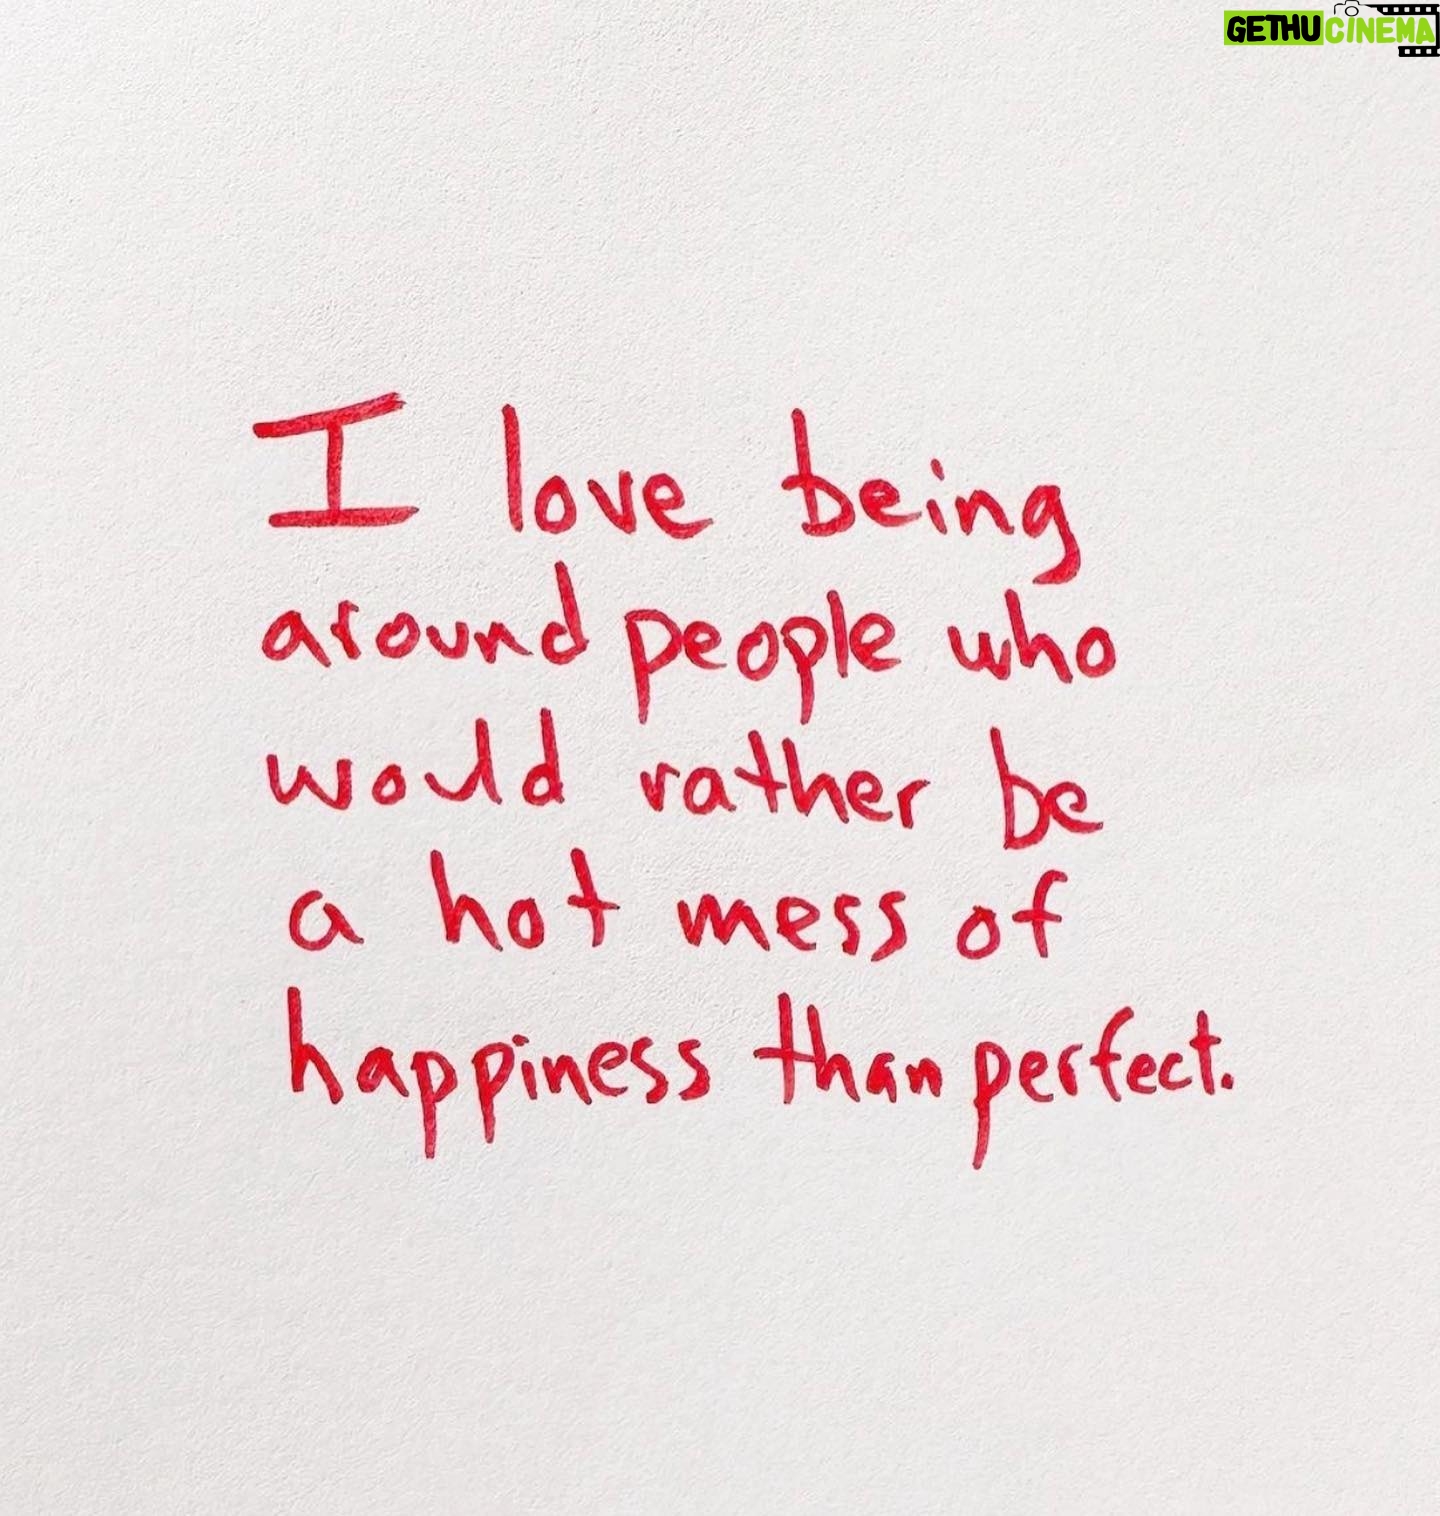 GETHUCINEMA
I love being
around people who
would rather be
a hot mess of
happiness than perfect.